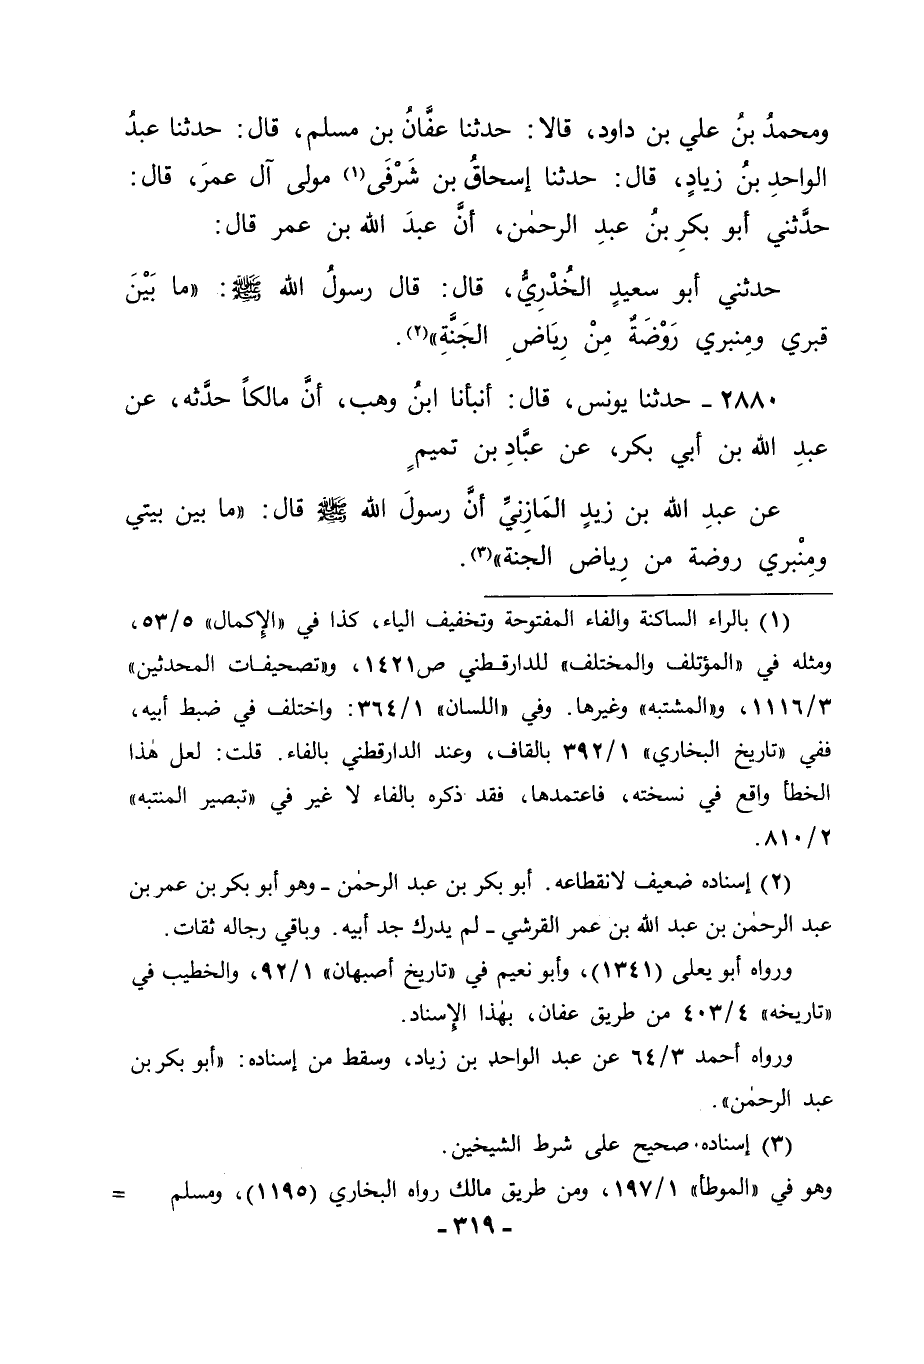 ومحمدُ بنُ علي بن داود، قالا: حدثنا عفَّانُ بن مسلم، قال: حدثنا عبدُ
الواحدِ بنُ زيادٍ، قال: حدثنا إسحاقُ بن شَرْفَى(١) مولى آل عمرَ، قال:
حدَّثني أبو بكرِ بنُ عبدِ الرحمٰن، أنَّ عبدَ الله بن عمر قال:
حدثني أبو سعيدٍ الخُدْرِيُّ، قال: قال رسولُ الله ﷺ: «ما بَيْنَ
قبري ومِنبري رَوْضَةٌ مِنْ رِيَاضِ الجَنَّةِ»(٢).
٢٨٨٠ ـ حدثنا يونس، قال: أنبأنا ابنُ وهب، أنَّ مالكاً حدَّثه، عن
عبدِ الله بن أبي بكر، عن عبَّادِ بن تميمٍ
عن عبدِ الله بن زيدٍ المَازِنيِّ أنَّ رسولَ الله ﷺ قال: «ما بين بيتي
ومِنْبري روضة من رِياض الجنة»(٣).
(١) بالراء الساكنة والفاء المفتوحة وتخفيف الياء، كذا في «الإكمال» ٥٣/٥،
ومثله في «المؤتلف والمختلف» للدارقطني ص١٤٢١، و«تصحيفات المحدثين»
١١١٦/٣، و«المشتبه» وغيرها. وفي «اللسان» ٣٦٤/١: واختلف في ضبط أبيه،
ففي «تاريخ البخاري» ٣٩٢/١ بالقاف، وعند الدارقطني بالفاء. قلت: لعل هٰذا
الخطأ واقع في نسخته، فاعتمدها، فقد ذكره بالفاء لا غير في «تبصير المنتبه»
٨١٠/٢.
(٢) إسناده ضعيف لانقطاعه. أبو بكر بن عبد الرحمٰن ـ وهو أبو بكر بن عمر بن
عبد الرحمٰن بن عبد الله بن عمر القرشي ـ لم يدرك جد أبيه. وباقي رجاله ثقات.
ورواه أبو يعلى (١٣٤١)، وأبو نعيم في «تاريخ أصبهان» ٩٢/١، والخطيب في
«تاريخه» ٤٠٣/٤ من طريق عفان، بهٰذا الإسناد.
ورواه أحمد ٦٤/٣ عن عبد الواحد بن زياد، وسقط من إسناده: «أبو بكر بن
عبد الرحمٰن».
(٣) إسناده صحيح على شرط الشيخين.
وهو في «الموطأ» ١٩٧/١، ومن طريق مالك رواه البخاري (١١٩٥)، ومسلم =
ـ ٣١٩ ـ